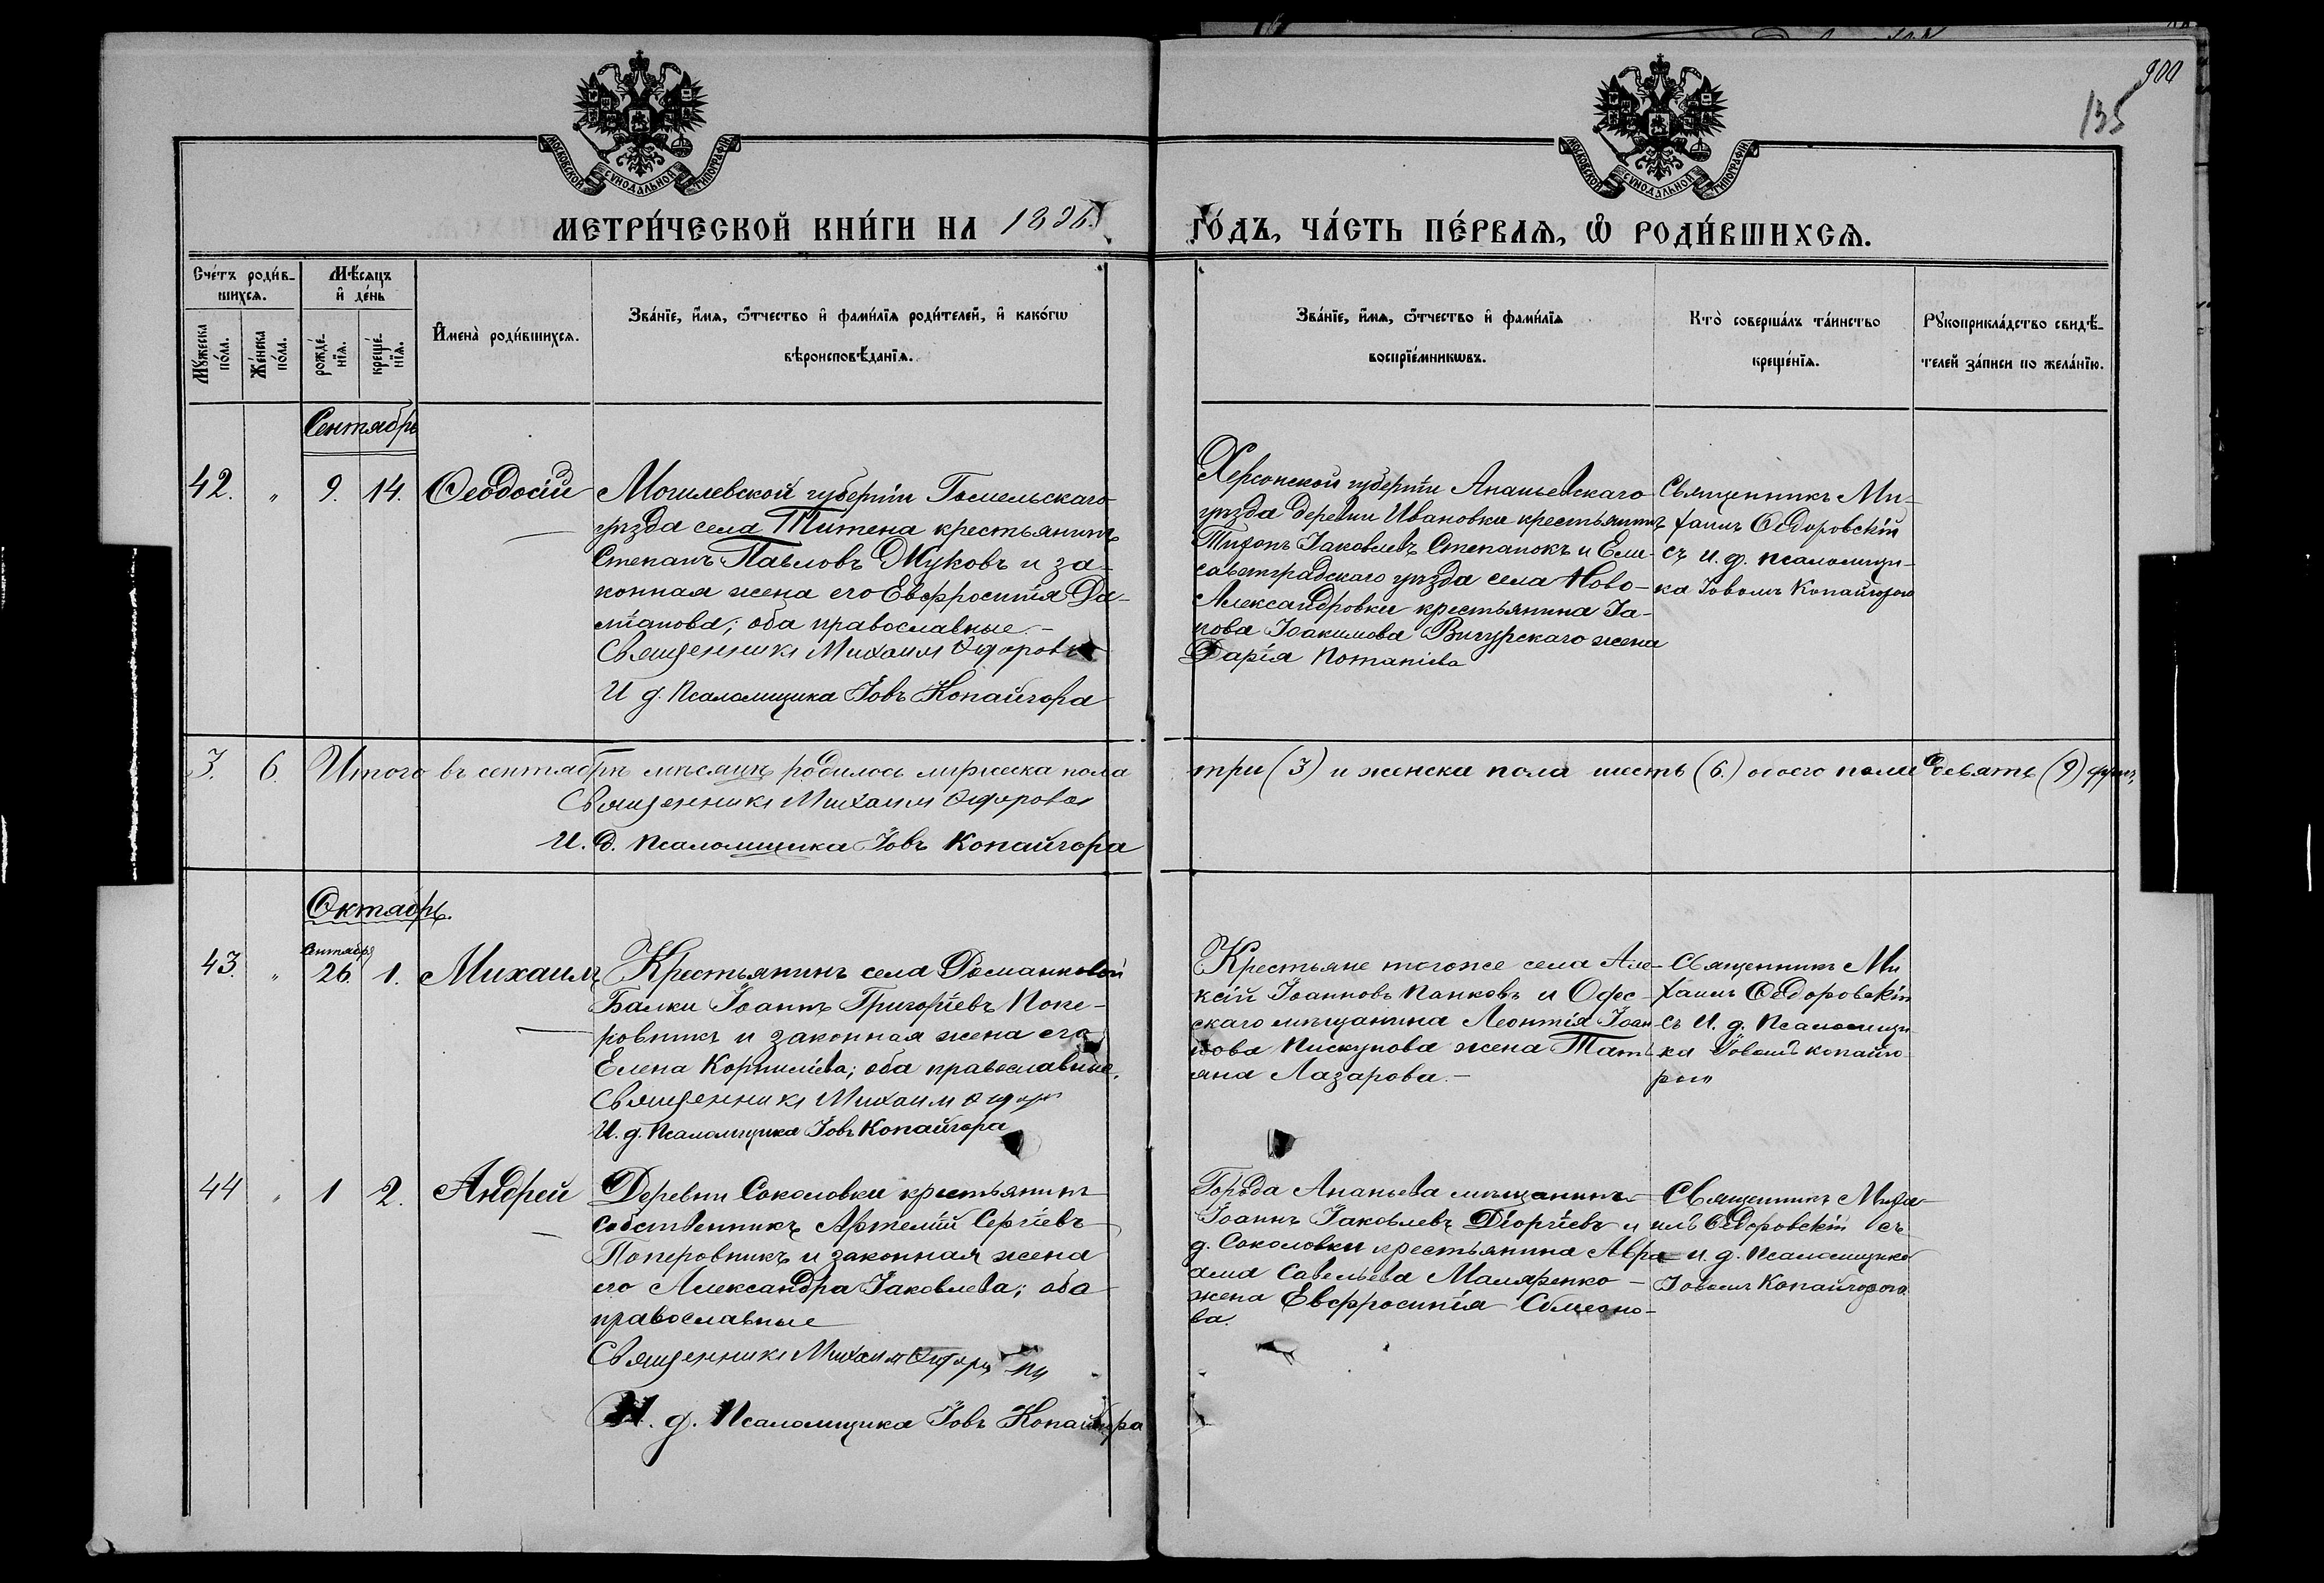 900
135
МОСКОВСКОЙ СѴНОДАЛЬНОЙ ТИПОГРАФІИ
МОСКОВСКОЙ СѴНОДАЛЬНОЙ ТИПОГРАФІИ
МЕТРИ́ЧЕСКОЙ КНИ́ГИ НА 1896
ГО́ДЪ, ЧА́СТЬ ПЕ́РВАѦ, Ѡ҆ РОДИ́ВШИХСѦ.
Сче́тъ роди́в-
шихсѧ.
Мѣ́сѧцъ
и҆ де́нь
Мꙋ́жеска по́ла.
Же́нска по́ла.
рожде́-нїѧ.
креще́-нїѧ.
И҆мена̀ роди́вшихсѧ.
Зва́нїе, и҆́мѧ, ѻ҆́тчество и҆ фами́лїѧ роди́телей, и҆ како́гѡ
вѣроисповѣ́данїѧ.
Зва́нїе, и҆́мѧ, ѻ҆́тчество и҆ фами́лїѧ
воспрїе́мникѡвъ.
Кто̀ соверша́лъ та́инство
креще́нїѧ.
Рꙋкоприкла́дство свидѣ́-
телей за́писи по жела́нїю.
Сентябрь
42. " 9. 14. Ѳеодосій
Могилевской губерніи Гомельскаго
уѣзда села Титена крестьянинъ
Степанъ Павловъ Жуковъ и за-
конная жена его Евфросинія Да-
міанова; оба православные.-
Священникъ Михаилъ
И д. Псаломщика Іовъ Копайгора
Херсонской губерніи Ананьевскаго
уѣзда деревни Ивановки крестьянинъ
Тихонъ Іаковлевъ Степанокъ и Ели-
саветградскаго уѣзда села Ново-
Александровки крестьянина Іа-
кова Іоакимова Вигурскаго жена
Дарія Потапіева
Священникъ Ми-
хаилъ Ѳедоровскій
съ И. д. псаломщи-
ка Іовомъ Копайгорою
3. 6. Итого въ сентябрѣ мѣсяцѣ родилось мужеска пола
три (3) и женска пола шесть (6.) обоего пола девять (9) душъ,
Священникъ Михаилъ
И. д. Псаломщика Іовъ Копайгора
Октябрь.
Сентябр.
43. " 26. 1. Михаилъ
Крестьянинъ села Доманковой
Балки Іоаннъ Григоріевъ Попе-
ровникъ и законная жена его
Елена Корниліева; оба православные.
Священникъ Михаилъ
И. д. Псаломщика Іовъ Копайгора
Крестьяне тогоже села Але-
ксій Іоанновъ Панковъ и Одес-
скаго мѣщанина Леонтія Іоан-
нова Пискунова жена Тать-
яна Лазарова.-
Священникъ Ми
хаилъ Ѳедоровскій
съ И. д. Псаломщи
ка Іовомъ Копайго-
рою
44 " 1 2. Андрей
Деревни Соколовки крестьянинъ
собственникъ Артемій Сергіевъ
Поперовникъ и законная жена
его Александра Іаковлева; оба
православные
Священникъ Михаилъ
И. д. Псаломщика Іовъ Копайгора
Города Ананьева мѣщанинъ
Іоаннъ Іаковлевъ Діоргіевъ и
д. Соколовки крестьянина Авра-
ама Савельева Маляренко -
жена Евфросинія Симеоно-
ва.
Священникъ Миха
илъ Ѳедоровскій съ
и. д. Псаломщика
Іовомъ Копайгорою